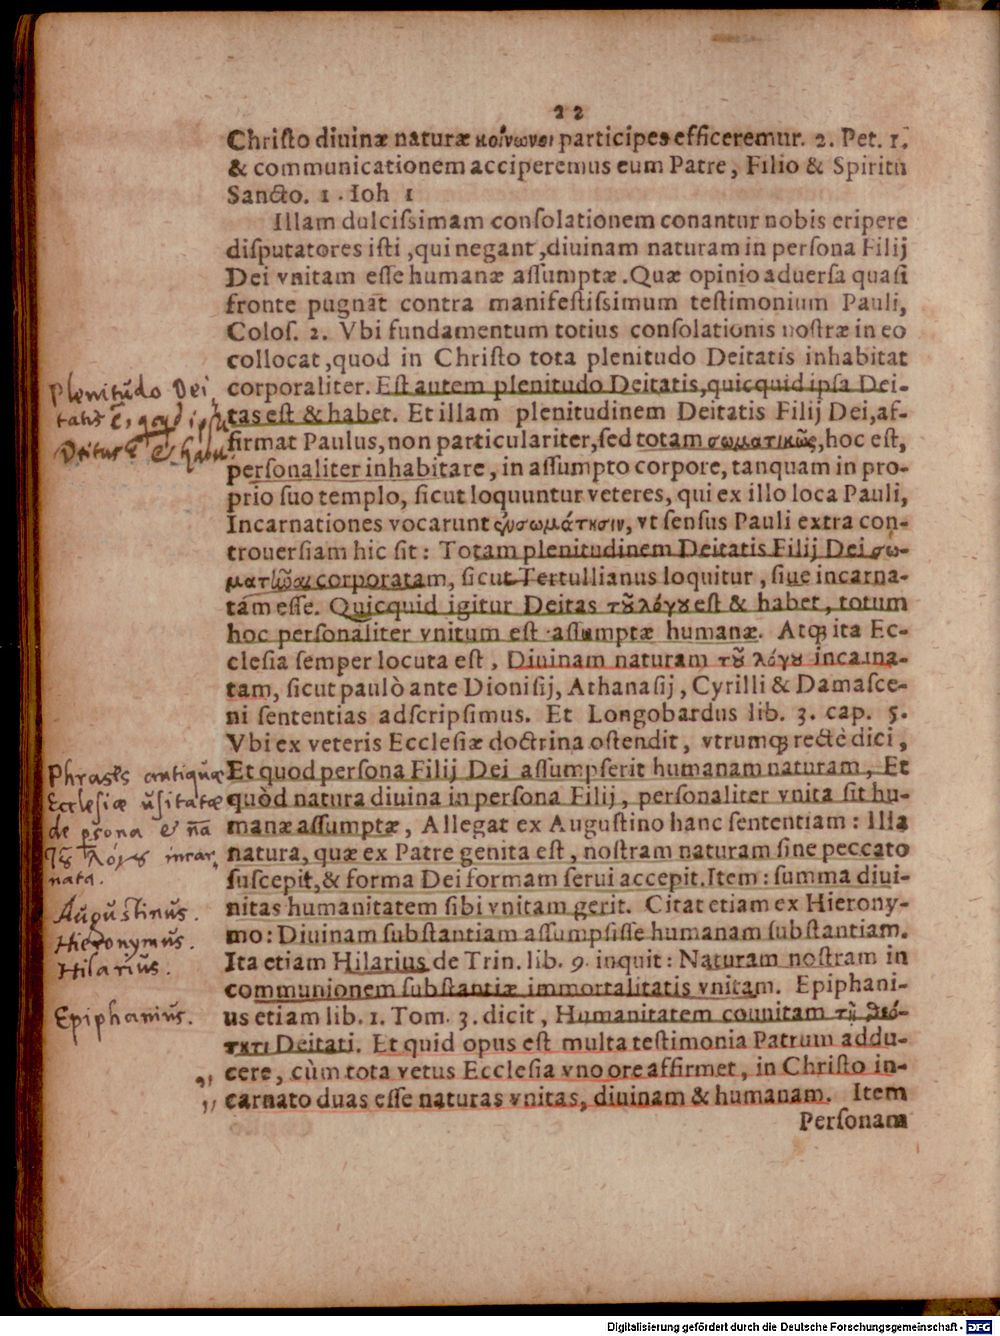 22
Chriſto diuinæ naturæ κοίνωνοι participes efficeremur. 2. Pet. 1.
& communicationem acciperemus cum Patre, Filio & Spiritu
Sancto. 1. Ioh 1
Illam dulciſsimam conſolationem conantur nobis eripere
diſputatores iſti, qui negant, diuinam naturam in perſona Filij
Dei vnitam eſſe humanæ aſſumptæ. Quæ opinio aduerſa quaſi
fronte pugnāt contra manifeſtiſsimum teſtimonium Pauli,
Coloſ. 2. Vbi fundamentum totius conſolationis noſtræ in eo
collocat, quod in Chriſto tota plenitudo Deitatis inhabitat
corporaliter. Eſt autem plenitudo Deitatis, quicquid ipſa Dei-
tas eſt & habet. Et illam plenitudinem Deitatis Filij Dei, af-
firmat Paulus, non particulariter, ſed totam σωματικῶς, hoc eſt,
perſonaliter inhabitare, in aſſumpto corpore, tanquam in pro-
prio ſuo templo, ſicut loquuntur veteres, qui ex illo loca Pauli,
Incarnationes vocarunt ἐνσωμάτησιν, vt ſenſus Pauli extra con-
trouerſiam hic ſit: Totam plenitudinem Deitatis Filij Dei σω-
ματικῶς corporatam, ſicut Tertullianus loquitur, ſiue incarna-
tam eſſe. Quicquid igitur Deitas τȣ͂ λόγȣ eſt & habet, totum
hoc perſonaliter vnitum eſt aſſumptæ humanæ. Atq; ita Ec-
cleſia ſemper locuta eſt, Diuinam naturam τȣ͂ λόγȣ incarna-
tam, ſicut paulò ante Dioniſij, Athanaſij, Cyrilli & Damaſce-
ni ſententias adſcripſimus. Et Longobardus lib. 3. cap. 5.
Vbi ex veteris Eccleſiæ doctrina oſtendit, vtrumq; rectè dici,
Et quod perſona Filij Dei aſſumpſerit humanam naturam, Et
quòd natura diuina in perſona Filij, perſonaliter vnita ſit hu-
manæ aſſumptæ, Allegat ex Auguſtino hanc ſententiam: Illa
natura, quæ ex Patre genita eſt, noſtram naturam ſine peccato
ſuſcepit, & forma Dei formam ſerui accepit. Item: ſumma diui-
nitas humanitatem ſibi vnitam gerit. Citat etiam ex Hierony-
mo: Diuinam ſubſtantiam aſſumpſiſſe humanam ſubſtantiam.
Ita etiam Hilarius de Trin. lib. 9. inquit: Naturam noſtram in
communionem ſubſtantiæ immortalitatis vnitam. Epiphani-
us etiam lib. 1. Tom. 3. dicit, Humanitatem counitam τῇ θεό-
τητι Deitati. Et quid opus eſt multa teſtimonia Patrum addu-
cere, cùm tota vetus Eccleſia vno ore affirmet, in Chriſto in-
carnato duas eſſe naturas vnitas, diuinam & humanam. Item
Perſonam
Plenitudo Dei
tatis ē, qcqd ipſa
Deitas ē & habet
Phraſes antiquæ
Eccleſiæ uſitatæ
de pſona & nā
τȣ͂ λόγȣ incar
nata.
Auguſtinus.
Hieronymus.
Hilarius.
Epiphanius.
Digitalisierung gefördert durch die Deutsche Forschungsgemeinschaft - DFG